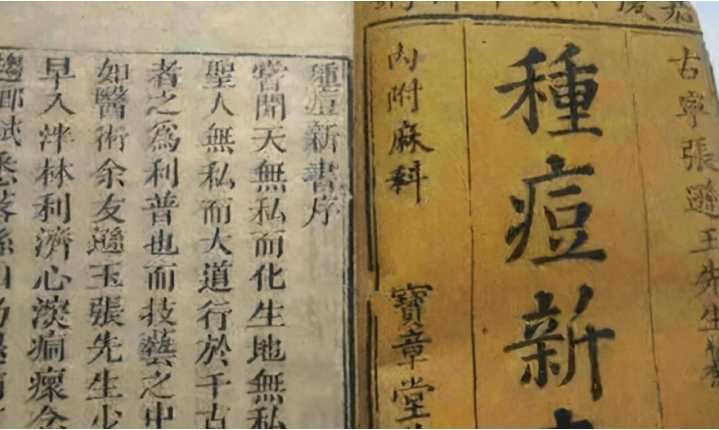 古寧張遜王先生
種痘新
內附麻科
寶章堂
種痘新書序
嘗聞天無私而化生地無私
聖人無私而大道行於千古
者之為利普也而技藝之中
如醫術余友遜玉張先生少
早入泮林利濟心深痌瘝念
郡試悉落孫山乃